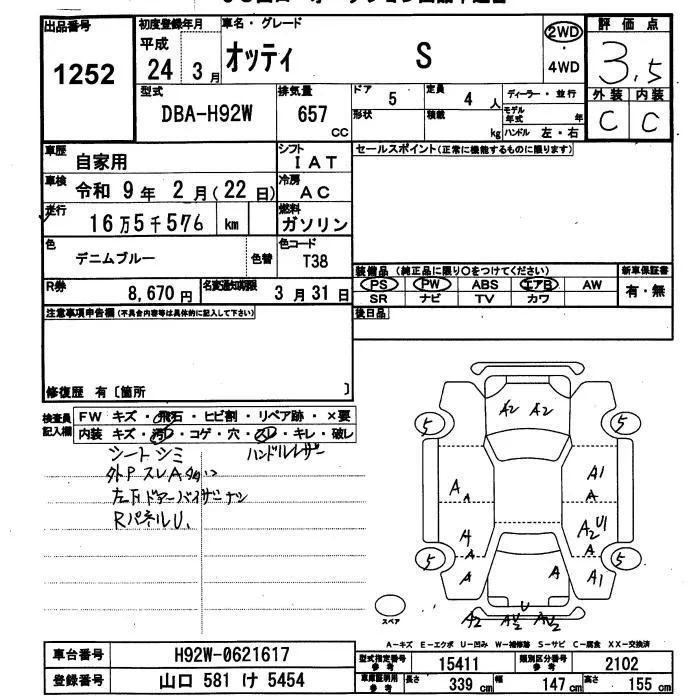 出品番号
1252
初度登録年月
平成
24 3月
車名・グレード
オッティ S
2WD
・
4WD
評価点
3.5
外装 内装
C C
型式
DBA-H92W
排気量
657
CC
ドア
5
定員
4人
形状
積載
kg
ディーラー・並行
モデル年式 年
ハンドル 左・右
車歴
自家用
シフト
I A T
セールスポイント(正常に機能するものに限ります)
車検
令和 9年 2月(22日)
冷房
A C
走行
16万5千576 km
燃料
ガソリン
色
デニムブルー
色替
色コード
T38
R券
8,670円
名変通知期限
3月31日
装備品 (純正品に限り○をつけてください)
PS PW ABS エアB AW
SR ナビ TV カワ
新車保証書
有・無
注意事項申告欄(不具合内容等は具体的に記入して下さい)
後日品
修復歴 有〔箇所 〕
検査員記入欄
FW キズ・飛石・ヒビ割・リペア跡・×要
内装 キズ・汚レ・コゲ・穴・スレ・キレ・破レ
シートシミ ハンドルレザー
外PスレA
左下ドアーバイザーナシ
RパネルU.
A2 A2
5 5
A A1
A A
A A2 U1
A A
5 5
A A A1
U
A2 AU2 AU2
スペア
A−キズ E−エクボ U−凹み W−補修跡 S−サビ C−腐食 XX−交換済
車台番号
H92W-0621617
型式指定番号
参考
15411
類別区分番号
参考
2102
登録番号
山口 581 け 5454
車庫証明用
参考
長さ
339 cm
幅
147 cm
高さ
155 cm